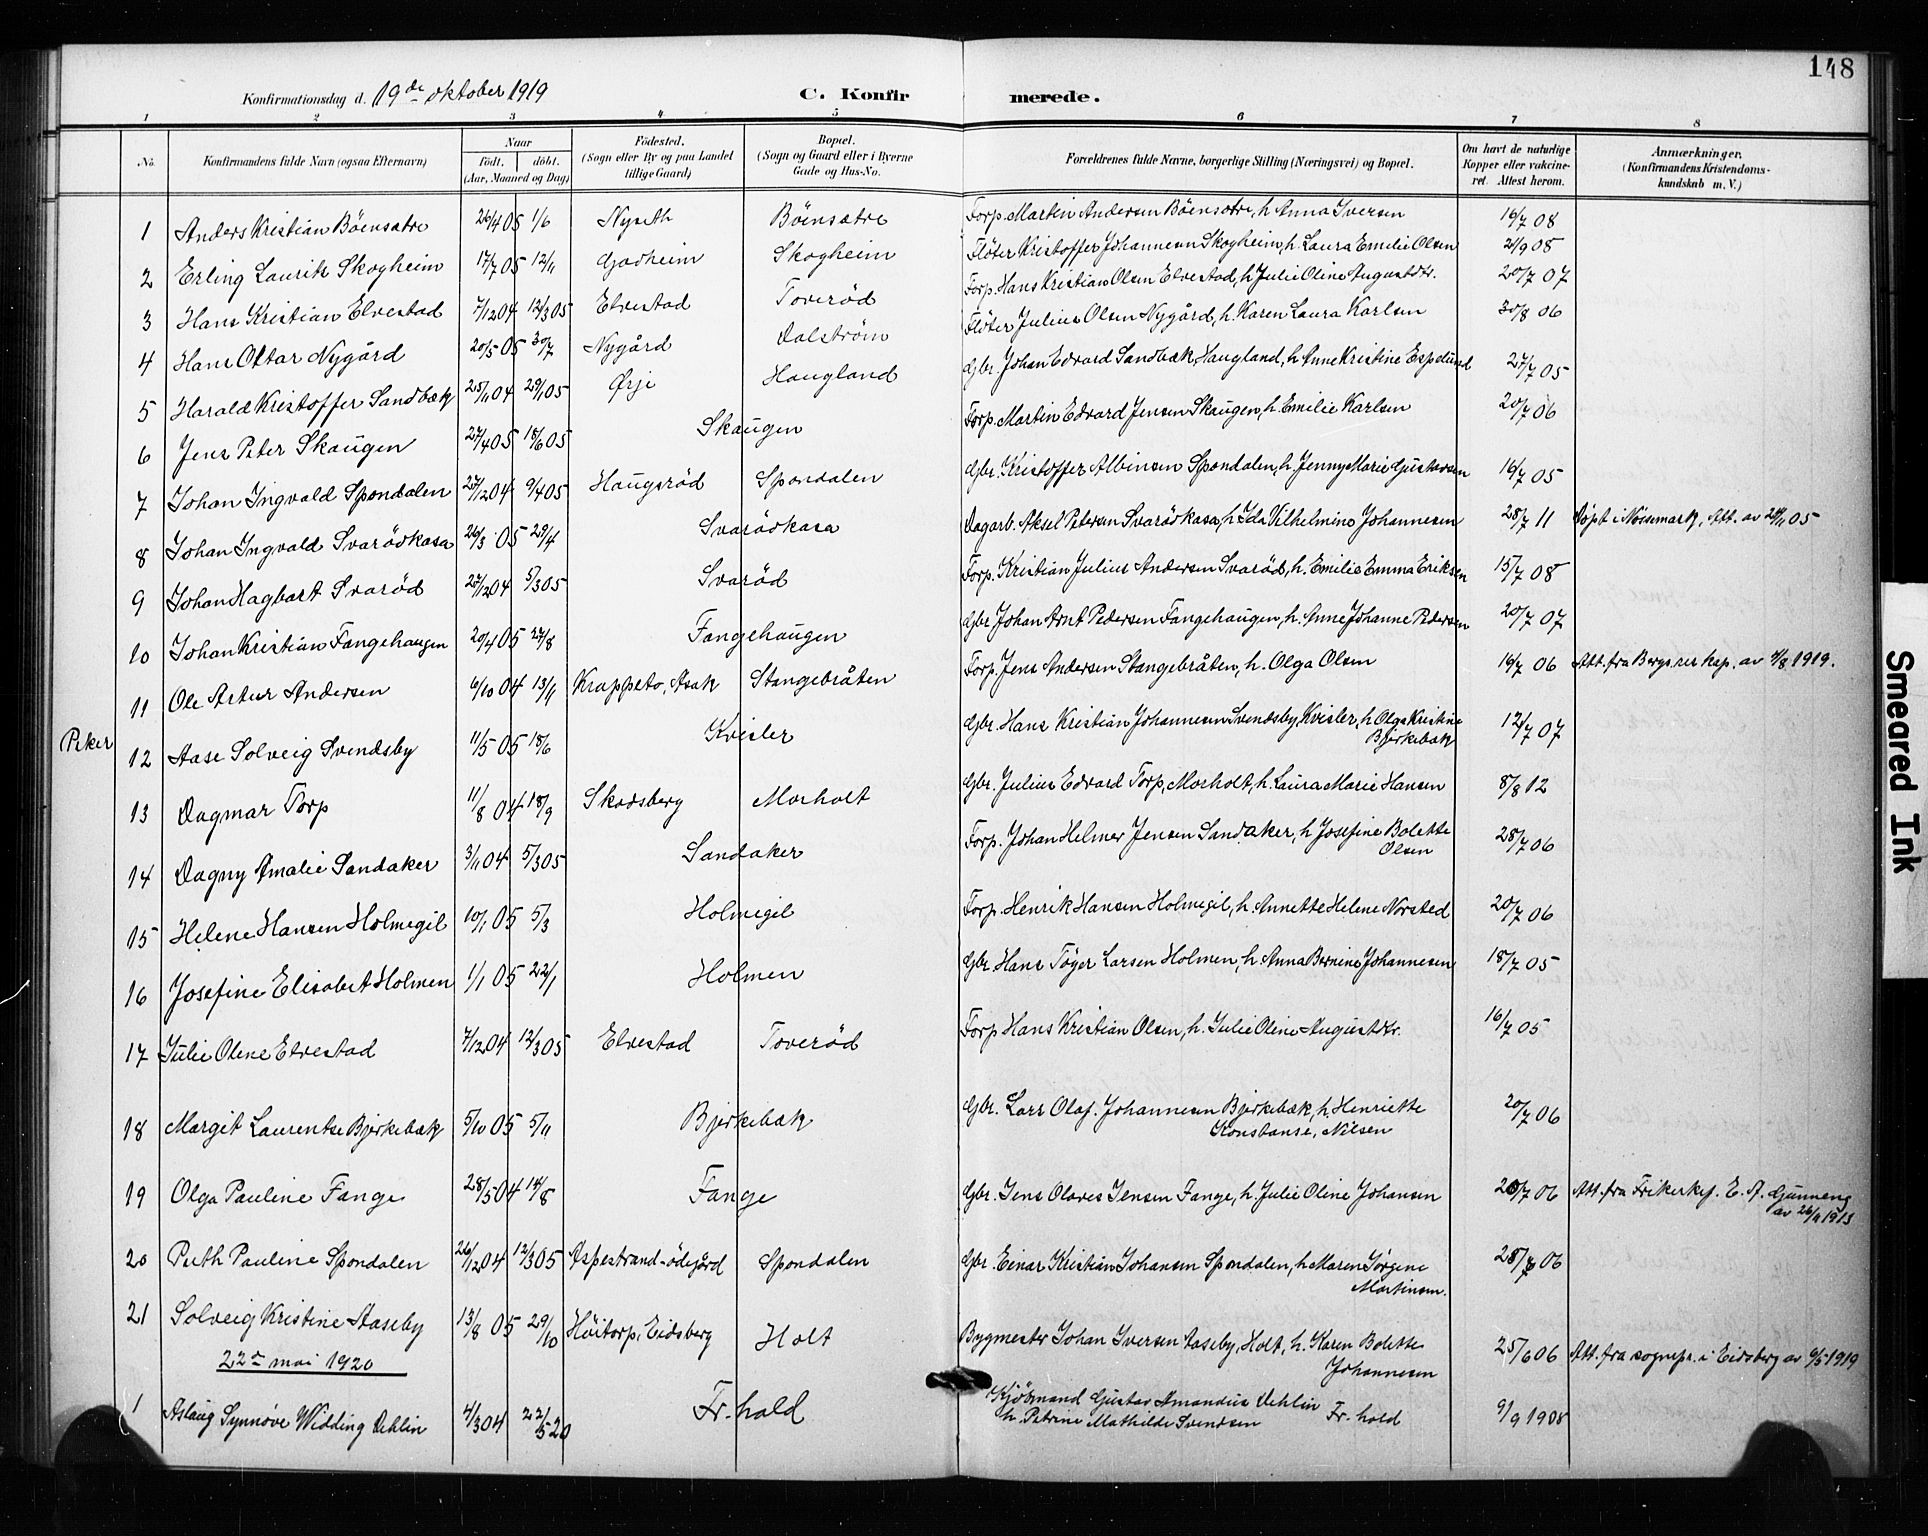 148
Konfirmationsdag d. 19de oktober 1919 C. Konfirmerede.
1 2 3 4 5 6 7 8
No. Konfirmandens fulde Navn (ogsaa Efternavn) Naar födt. döbt. (Aar, Maaned og Dag) Födested. (Sogn eller By og paa Landet tillige Gaard) Bopæl. (Sogn og Gaard eller i Byerne Gade og Hus-No. Forældrenes fulde Navne, borgerlige Stilling (Næringsvei) og Bopæl. Om havt de naturlige Kopper eller vakcineret. Attest herom. Anmærkninger. (Konfirmandens Kristendomskundskab m. V.)
1 Anders Kristian Böensætre 26/4 05 1/6 Nyseth Böensætre Forp. Martin Andersen Böensætre, h. Anna Iversen 16/7 08
2 Erling Laurits Skogheim 17/7 05 12/11 Godheim Skogheim Flöter Kristoffer Johannesen Skogheim, h. Laura Emilie Olsen 21/9 08
3 Hans Kristian Elvestad 7/12 04 12/3 05 Elvestad Toveröd Forp. Hans Kristian Olsen Elvestad, h. Julie Oline Augustdtr. 20/7 07
4 Hans Ottar Nygård 20/5 05 30/7 Nygård Dalström Flöter Julius Olsen Nygård, h. Karen Laura Karlsen 30/8 06
5 Harald Kristoffer Sandbæk 25/11 04 29/1 05 Ørje Haugland Gbr. Johan Edvard Sandbæk, Haugland, h. Anne Kristine Espelund 27/7 05
6 Jens Peter Skaugen 27/4 05 18/6 05 Skaugen Forp. Martin Edvard Jensen Skaugen, h. Emilie Karlsen 20/7 06
7 Johan Ingvald Spondalen 27/12 04 9/4 05 Haugsröd Spondalen Gbr. Kristoffer Albinsen Spondalen, h. Jenny Marie Gustavsen 16/7 05
8 Johan Ingvald Svarödkasa 26/3 05 29/4 Svarödkasa Dagarb. Aksel Petersen Svarödkasa, h. Ida Vilhelmine Johannesen 28/7 11 Döpt i Nössemark, Att. av 24/11 05
9 Johan Hagbart Svaröd 27/12 04 5/3 05 Svaröd Forp. Kristian Julius Andersen Svaröd, h. Emilie Emma Eriksen 15/7 08
10 Johan Kristian Fangehaugen 20/4 05 27/8 Fangehaugen Gbr. Johan Arnt Pedersen Fangehaugen, h. Anne Johanne Pedersen 20/7 07
11 Ole Artur Andersen 6/10 04 13/11 Krappeto, Asak Stangebråten Forp. Jens Andersen Stangebråten, h. Olga Olsen 16/7 06 Att. fra Bergs res. kap. av 4/8 1919.
Piker
12 Aase Solveig Svendsby 11/5 05 18/6 Kvisler Gbr. Hans Kristian Johannesen Svendsby, Kvisler, h. Olga Kristine 12/7 07
Bjerkebæk
13 Dagmar Torp 11/8 04 18/9 Skodsberg Morholt Gbr. Julius Edvard Torp, Morholt, h. Laura Marie Hansen 8/8 12
14 Dagny Amalie Sandaker 3/11 04 5/3 05 Sandaker Forp. Johan Helmer Jensen Sandaker, h. Josefine Bolette 28/7 06
Olsen
15 Helene Hansen Holmegil 10/1 05 5/3 Holmegil Forp. Henrik Hansen Holmegil, h. Annette Helene Norsted 20/7 06
16 Josefine Elisabet Holmen 1/1 05 22/1 Holmen Gbr. Hans Töger Larsen Holmen, h. Anna Bernine Johannesen 18/7 05
17 Julie Olene Elvestad 7/12 04 12/3 05 Elvestad Toveröd Forp. Hans Kristian Olsen, h. Julie Oline Augustdtr. 16/7 05
18 Margit Laurentse Bjerkebæk 5/10 05 5/11 Bjerkebæk Gbr. Lars Olaf Johannesen Bjerkebæk, h. Henriette 20/7 06
Konstanse, Nilsen
19 Olga Pauline Fange 28/5 04 14/8 Fange Gbr. Jens Olaves Jensen Fange, h. Julie Oline Johansen 20/7 06 Att. fra Frikerkef. E. A. Gunneng
av 26/11 1913
20 Ruth Pauline Spondalen 26/12 04 12/3 05 Aspestrand-ödegård Spondalen Gbr. Einar Kristian Johansen Spondalen, h. Maren Jörgine 28/7 06
Martinsen.
21 Solveig Kristine Aaseby 13/8 05 29/10 Höitorp, Eidsberg Holt Bygmester Johan Iversen Aaseby, Holt, h. Karen Bolette 25/6 06 Att. fra sognepr. i Eidsberg av 6/5 1919
Johannesen
22de mai 1920
1 Aslaug Synnöve Widding Dehlin 4/3 04 22/5 20 Fr.hald Kjöbmand Gustav Amandus Dehlin Fr.hald 9/9 1908
h. Petrine Mathilde Svendsen
Smeared Ink